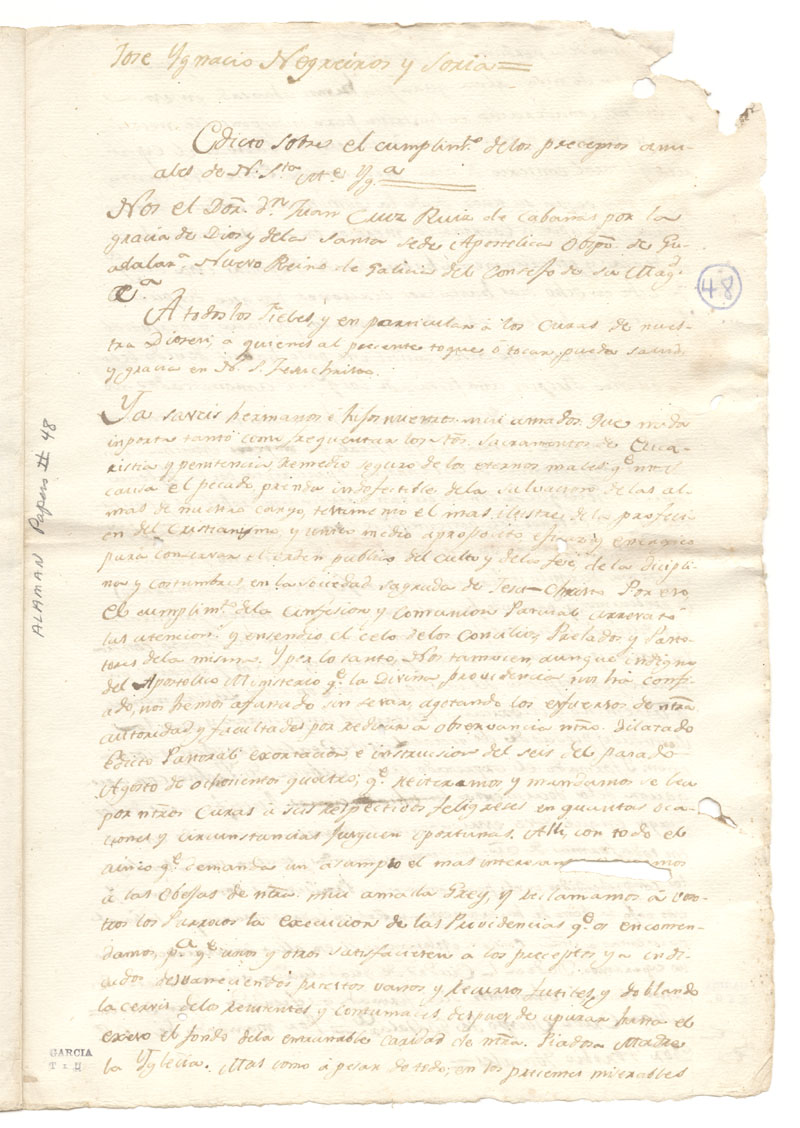 Jose Ygnacio Negreiros y Soria
Edicto sobre el cumplimt.o delos preceptos anu-
ales de N. S.ta M.e Yg.a
Nos el Dor. d.n Juan Cruz Ruiz de Cabañas por la
gracia de Dios y dela Santa Sede Apostolica Obpo. de Gu-
adalax.a Nuevo Reino de Galicia del Consejo de Su Mag.
&.a
A todos los Fieles, y en particular à los Curas de nues-
tra Diosesi, a quienes al precente toque, ò tocar pueda salud,
y gracia en N. S. Jesuchristo.
Ya saveis hermanos è hijos nuestros mui amados. Que nada
inporta tantò como frequentar los Stos. Sacramentos de Euca-
ristia y penitencia remedio seguro de los eternos males q.e nos
causa el pecado, prenda indefectible dela salvacion de las al-
mas de nuestro cargo, testimonio el mas ilustre dela profeci-
on del Cristianismo, y unico medio aproposito eficaz y energico
para conservar el orden publico del culto y dela feè, de la dicipli-
na y costumbres, en la sociedad sagrada de Jesu-Christo Por eso
el cumplimt.o dela Confesion y Comunion Pascual arrevatò
las atencion.s y ensendio el celo de los Concilios, Prelados y Pasto-
res dela misma. Y por lo tanto, Nos tamvien, aunque indigno
del Apostolico Ministerio q.e la Divina providencia nos hà confi-
ado, nos hemos afanado sin sesar, agotando los esfuersos de ntrã
autoridad y facultades por reducir à observancia ntro. dilatado
Edicto Pastoral, exortacion è instrusion del seis del pasado
Agosto de ochosientos quatro; q.e reiteramos y mandamos se lea
por ntros Curas à sus respectidos feligreses en quantas oca-
ciones y circunstancias jusguen oportunas. Alli, con todo el
ainco q.e demanda un asampto el mas interesan mos
à las obejas de ntra. mui amada Grey, y reclamamos à voso-
tros los Parrocos la execucion de las Providencias q.e os encomen-
damos, p.a q.e unos y otros satisfaciesen à los preceptos ya indi-
cados desvaneciendo pretextos vanos y recursos futiles, y doblando
la cervis delos renuentes y contumaces, despues de apurar hasta el
exeso el fondo dela entrañable caridad de ntra. Piadosa Madre
la Yglecia. Mas como à pesar de todo, en los precentes miserables
48
ALAMAN Papers II 48
GARCIA